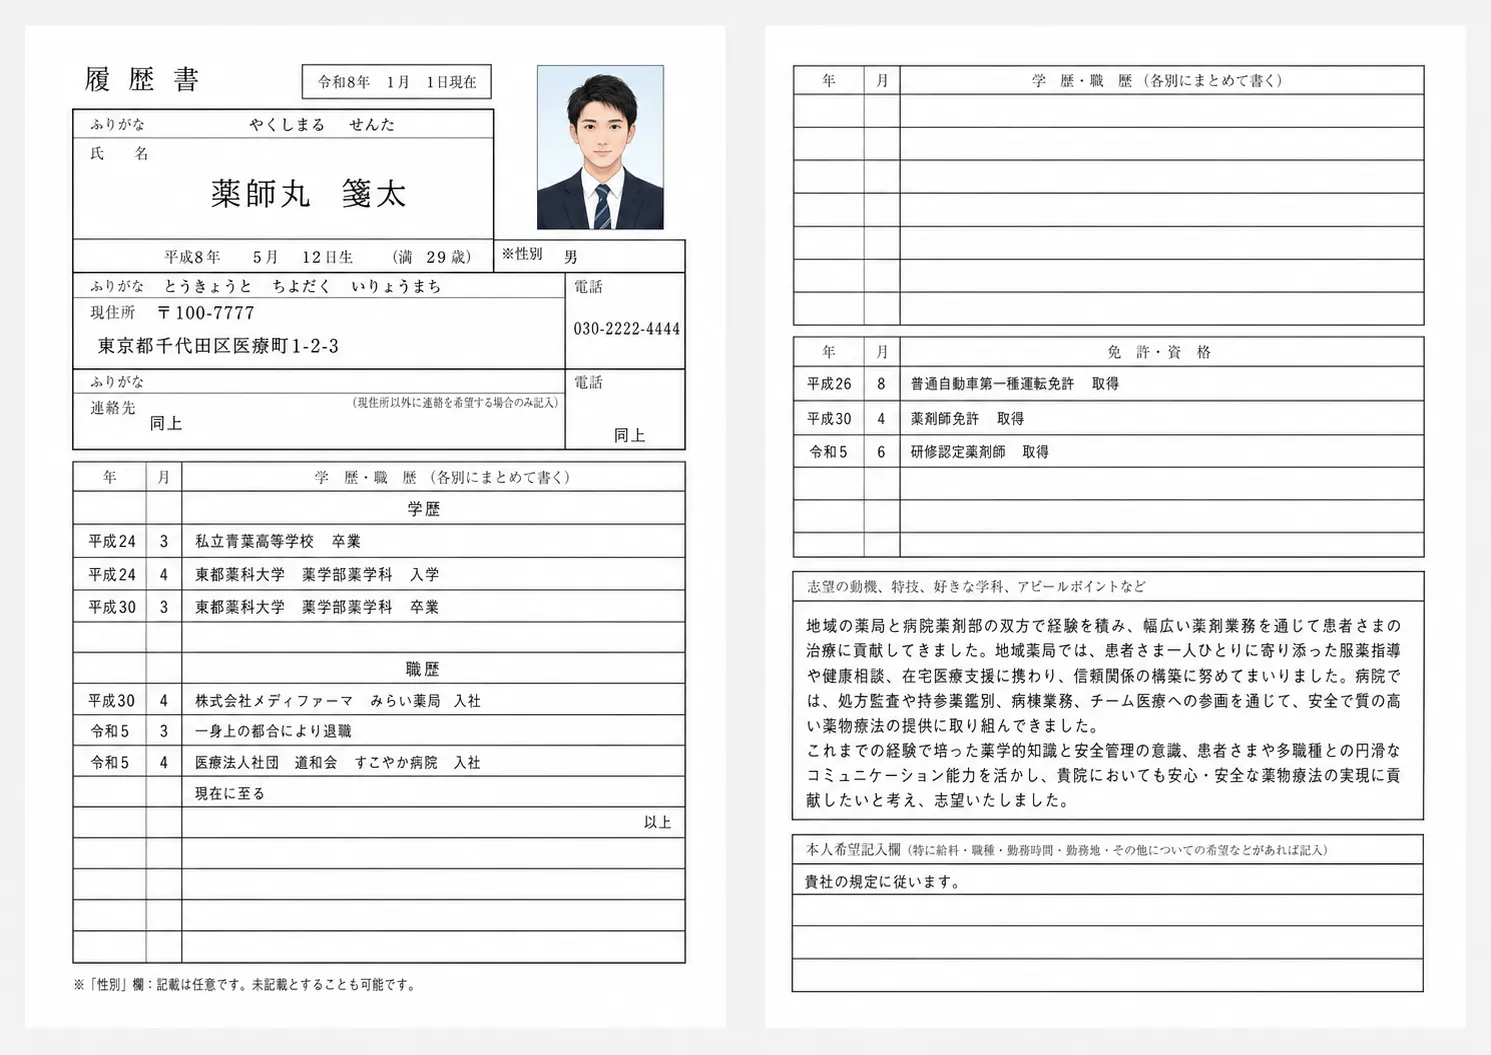 履歴書
令和8年 1月 1日現在
ふりがな やくしまる せんた
氏 名
薬師丸 箋太
平成8年 5月 12日生 (満 29 歳)
※性別 男
ふりがな とうきょうと ちよだく いりょうまち
電話
現住所 〒100-7777
030-2222-4444
東京都千代田区医療町1-2-3
ふりがな
電話
連絡先 (現住所以外に連絡を希望する場合のみ記入)
同上
同上
年 月 学 歴・職 歴 (各別にまとめて書く)
学歴
平成24 3 私立青葉高等学校 卒業
平成24 4 東都薬科大学 薬学部薬学科 入学
平成30 3 東都薬科大学 薬学部薬学科 卒業
職歴
平成30 4 株式会社メディファーマ みらい薬局 入社
令和5 3 一身上の都合により退職
令和5 4 医療法人社団 道和会 すこやか病院 入社
現在に至る
以上
※「性別」欄：記載は任意です。未記載とすることも可能です。
年 月 学 歴・職 歴 (各別にまとめて書く)
年 月 免 許・資 格
平成26 8 普通自動車第一種運転免許 取得
平成30 4 薬剤師免許 取得
令和5 6 研修認定薬剤師 取得
志望の動機、特技、好きな学科、アピールポイントなど
地域の薬局と病院薬剤部の双方で経験を積み、幅広い薬剤業務を通じて患者さまの
治療に貢献してきました。地域薬局では、患者さま一人ひとりに寄り添った服薬指導
や健康相談、在宅医療支援に携わり、信頼関係の構築に努めてまいりました。病院で
は、処方監査や持参薬鑑別、病棟業務、チーム医療への参画を通じて、安全で質の高
い薬物療法の提供に取り組んできました。
これまでの経験で培った薬学的知識と安全管理の意識、患者さまや多職種との円滑な
コミュニケーション能力を活かし、貴院においても安心・安全な薬物療法の実現に貢
献したいと考え、志望いたしました。
本人希望記入欄 (特に給料・職種・勤務時間・勤務地・その他についての希望などがあれば記入)
貴社の規定に従います。